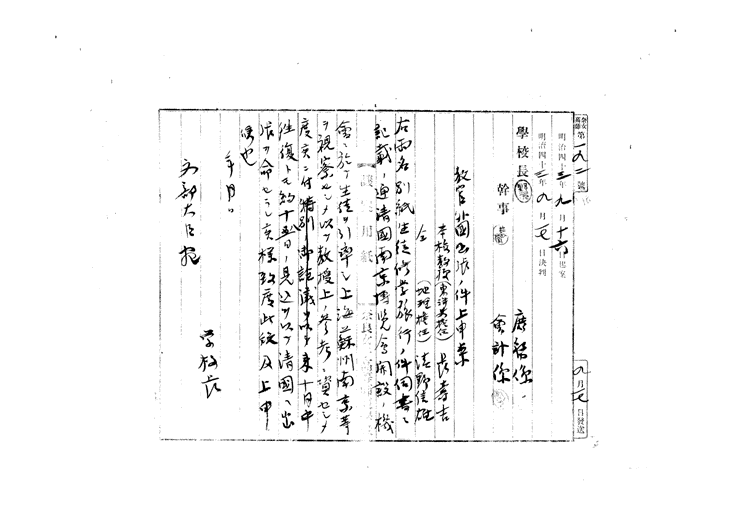 第一九二號
明治四十三年九月十六日起案
明治四十三年九月 日決判
九月 日發送
學校長
幹事
庶務係
會計係
教官 出張ノ件上申案
本校教授(東洋史擔任)長壽吉
仝 (地理擔任)
右兩名別紙生徒修學旅行ノ件伺書ニ
記載ノ通清國南京博覽會開設ノ機
會ニ於テ生徒ヲ引率シ上海蘇州南京等
ヲ視察セシメ以テ教授上ノ參考ノ資ニセシメ
度候ニ付特別ノ御詮議ヲ以テ來十月中
往復トモ約十五日ノ見込ヲ以テ清國ヘ出
張ヲ命セラレ候樣致度此段及上申
候也
年月日
文部大臣宛
學校長